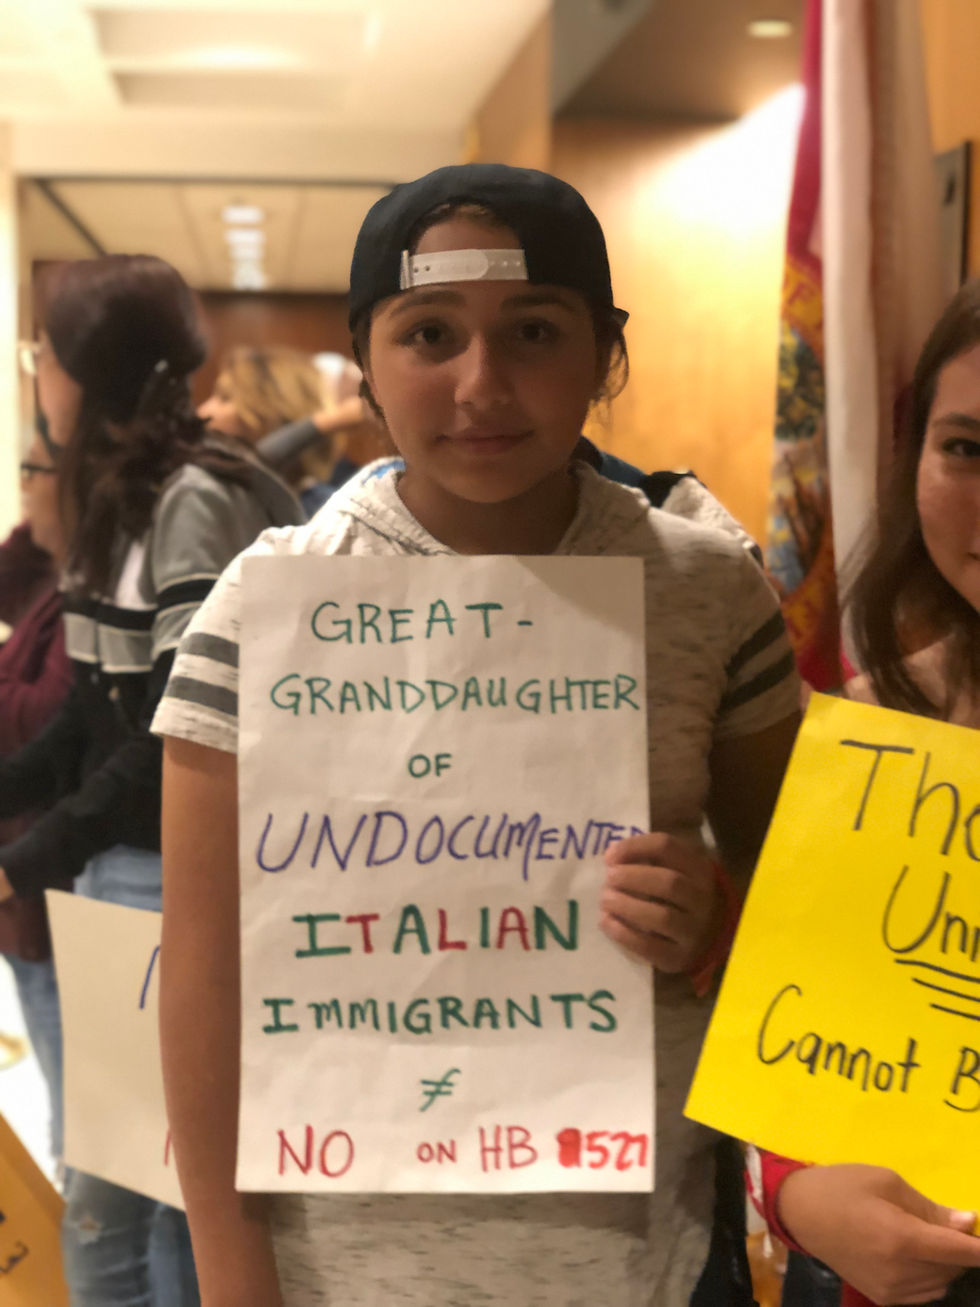 GREAT-
GRANDDAUGHTER
OF
UNDOCUMENTED
ITALIAN
IMMIGRANTS
≠
NO ON HB 9527
Cannot